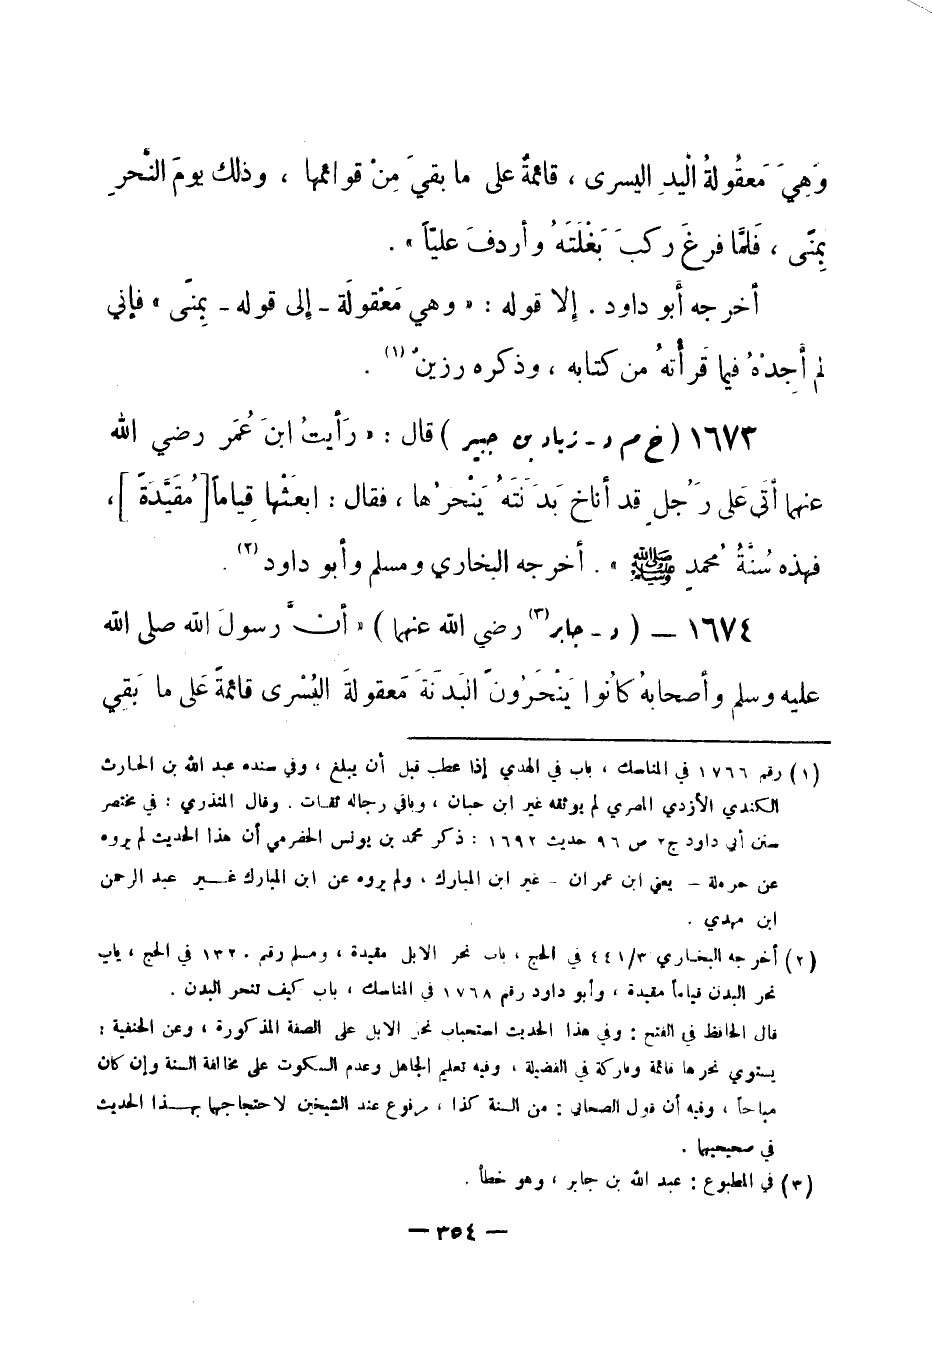 وَهِيَ مَعقُولةُ الْيدِ اليسرى ، قائمةٌ على ما بقيَ مِنْ قوائمها ، وذلك يومَ النَّحرِ
بِمنًى ، فَلمَّا فرغَ ركبَ بَغْلَتَهُ وأردفَ عليّاً » .
أخرجه أبو داود . إلا قوله : « وهي مَعْقولَة ـ إلى قوله ـ بِمنًى » فإني
لم أجِدْهُ فيما قَرأتهُ من كتابه ، وذكره رزينٌ (١) .
١٦٧٣ ( خ م د - زياد بن جبير ) قال : « رَأيتُ ابنَ عُمَر رضي الله
عنهما أتَى عَلى رَجُلٍ قد أناخ بَدَنَتَهُ يَنْحَرُها ، فقال : ابعَثْها قِياماً [ مُقَيَّدَةً ] ،
فهذه سُنَّةُ مُحمدٍ ﷺ » . أخرجه البخاري ومسلم وأبو داود (٢) .
١٦٧٤ — ( د - جابر (٣) رضي الله عنهما ) « أنَّ رسولَ الله صلى الله
عليه وسلم وأصحابهُ كانُوا يَنْحَرُونَ البَدَنَةَ مَعقولةَ اليُسْرى قائمةً عَلى ما بَقِي
(١) رقم ١٧٦٦ في المناسك ، باب في الهدي إذا عطب قبل أن يبلغ ، وفي سنده عبد الله بن الحارث
الكندي الأزدي المصري لم يوثقه غير ابن حبان ، وباقي رجاله ثقات . وقال المنذري : في مختصر
سنن أبي داود ج٢ ص ٩٦ حديث ١٦٩٢ : ذكر محمد بن يونس الحضرمي أن هذا الحديث لم يروه
عن حرملة - يعني ابن عمران - غير ابن المبارك ، ولم يروه عن ابن المبارك غير عبد الرحمن
ابن مهدي .
(٢) أخرجه البخاري ٤٤١/٣ في الحج ، باب نحر الابل مقيدة ، ومسلم رقم ١٣٢٠ في الحج ، باب
نحر البدن قياماً مقيدة ، وأبو داود رقم ١٧٦٨ في المناسك ، باب كيف تنحر البدن .
قال الحافظ في الفتح : وفي هذا الحديث استحباب نحر الابل على الصفة المذكورة ، وعن الحنفية :
يستوي نحرها قائمة وباركة في الفضيلة ، وفيه تعليم الجاهل وعدم السكوت على مخالفة السنة وإن كان
مباحاً ، وفيه أن قول الصحابي : من السنة كذا ، مرفوع عند الشيخين لاحتجاجهما بهذا الحديث
في صحيحيهما .
(٣) في المطبوع : عبد الله بن جابر ، وهو خطأ .
— ٣٥٤ —